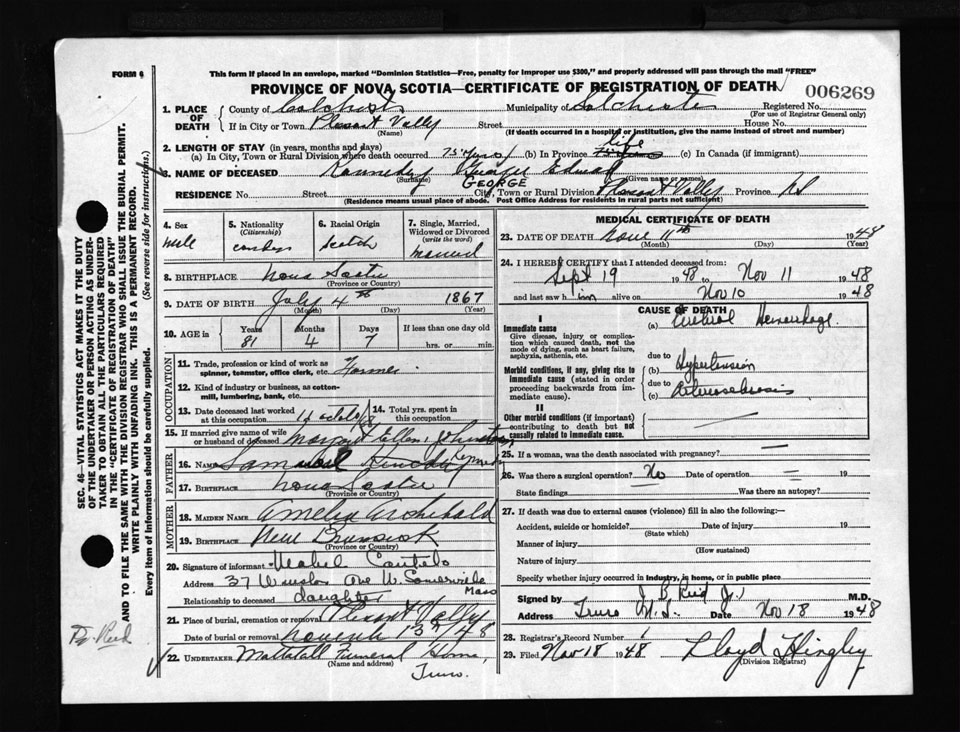 FORM 6
This form if placed in an envelope, marked "Dominion Statistics—Free, penalty for improper use $300," and properly addressed will pass through the mail "FREE"
PROVINCE OF NOVA SCOTIA—CERTIFICATE OF REGISTRATION OF DEATH
006269
1. PLACE OF DEATH
County of Colchester Municipality of Colchester Registered No.
(For use of Registrar General only)
If in City or Town Pleasant Valley Street House No.
(Name) (If death occurred in a hospital or institution, give the name instead of street and number)
2. LENGTH OF STAY (in years, months and days)
(a) In City, Town or Rural Division where death occurred 75 years (b) In Province life (c) In Canada (if immigrant)
3. NAME OF DECEASED Kennedy George Edward
(Surname) (Given name or names)
GEORGE
RESIDENCE No. Street City, Town or Rural Division Pleasant Valley Province NS
(Residence means usual place of abode. Post Office Address for residents in rural parts not sufficient)
4. Sex
5. Nationality (Citizenship)
6. Racial Origin
Scotch
7. Single, Married, Widowed or Divorced (write the word)
married
8. BIRTHPLACE Nova Scotia
(Province or Country)
9. DATE OF BIRTH July 4th 1867
(Month) (Day) (Year)
10. AGE in Years Months Days If less than one day old
81 4 7 hrs. or min.
OCCUPATION
11. Trade, profession or kind of work as spinner, teamster, office clerk, etc. Farmer
12. Kind of industry or business, as cotton-mill, lumbering, bank, etc.
13. Date deceased last worked at this occupation
14. Total yrs. spent in this occupation
15. If married give name of wife or husband of deceased Margaret Ellen
FATHER
16. NAME Samuel Kennedy
17. BIRTHPLACE Nova Scotia
(Province or Country)
MOTHER
18. MAIDEN NAME Amelia Archibald
19. BIRTHPLACE New Brunswick
(Province or Country)
20. Signature of informant Mabel
Address 37 Winslow Ave W. Somerville Mass
Relationship to deceased daughter
21. Place of burial, cremation or removal Pleasant Valley
Date of burial or removal November 13th/48
22. UNDERTAKER Mattatall Funeral Home,
(Name and address)
Truro.
MEDICAL CERTIFICATE OF DEATH
23. DATE OF DEATH Nove 11th 1948
(Month) (Day) (Year)
24. I HEREBY CERTIFY that I attended deceased from:
Sept 19 1948 to Nov 11 1948
and last saw him alive on Nov 10 1948
CAUSE OF DEATH
I
Immediate cause
Give disease, injury or complication which caused death, not the mode of dying, such as heart failure, asphyxia, asthenia, etc.
(a) Cerebral Hemorrhage
due to
Morbid conditions, if any, giving rise to immediate cause (stated in order proceeding backwards from immediate cause).
(b) Hypertension
due to
(c) Arteriosclerosis
II
Other morbid conditions (if important) contributing to death but not causally related to immediate cause.
25. If a woman, was the death associated with pregnancy?
26. Was there a surgical operation? No Date of operation 19
State findings Was there an autopsy?
27. If death was due to external causes (violence) fill in also the following:—
Accident, suicide or homicide? Date of injury 19
(State which)
Manner of injury
(How sustained)
Nature of injury
Specify whether injury occurred in industry, in home, or in public place
Signed by J B Reid Jr. M.D.
Address Truro N.S. Date Nov 18 1948
28. Registrar's Record Number 1
29. Filed Nov 18 1948 Lloyd Hingley
(Division Registrar)
SEC. 46—VITAL STATISTICS ACT MAKES IT THE DUTY
OF THE UNDERTAKER OR PERSON ACTING AS UNDER-
TAKER TO OBTAIN ALL THE PARTICULARS REQUIRED
IN THE "CERTIFICATE OF REGISTRATION OF DEATH"
AND TO FILE THE SAME WITH THE DIVISION REGISTRAR WHO SHALL ISSUE THE BURIAL PERMIT.
WRITE PLAINLY WITH UNFADING INK. THIS IS A PERMANENT RECORD.
Every item of information should be carefully supplied. (See reverse side for instructions.)
Dr. Reid